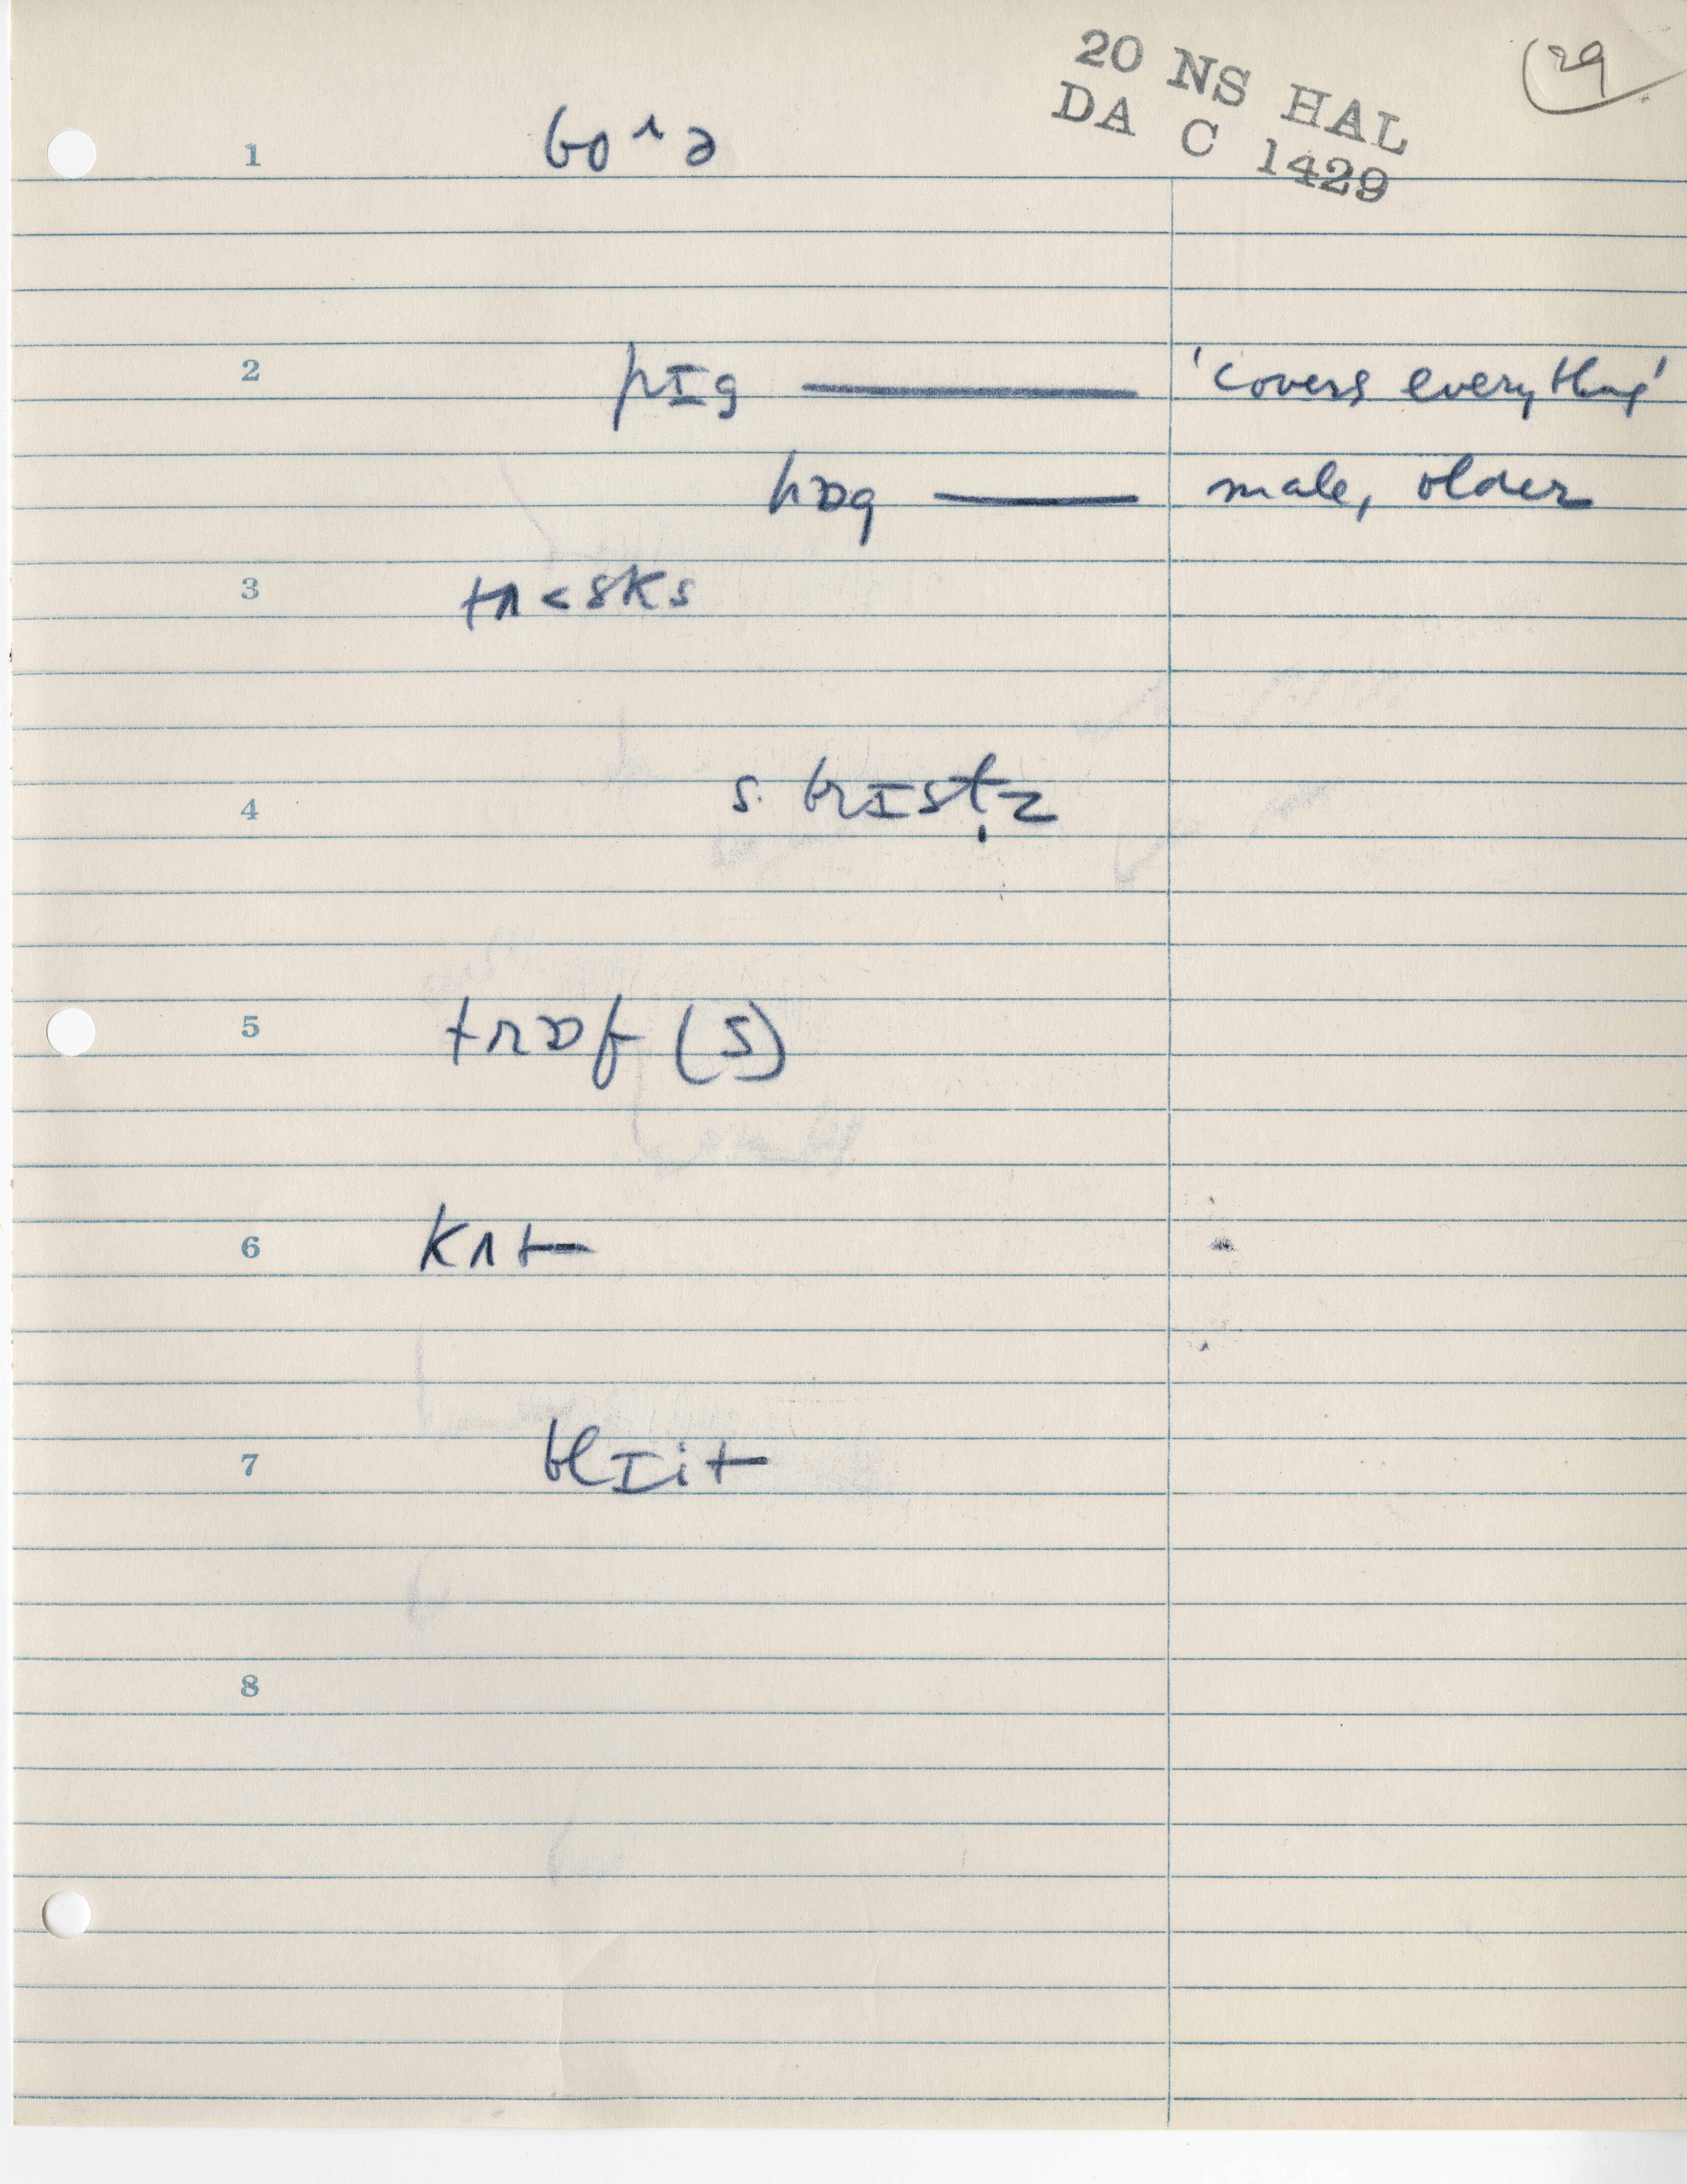 20 NS HAL
DA C 1429
29
1 bo^ə
2 pɪg — 'covers everything'
hɒg — male, older
3 tʌ<sks
4 s. brɪst̩z
5 trɒf (s)
6 kʌt—
7 blɪit—
8